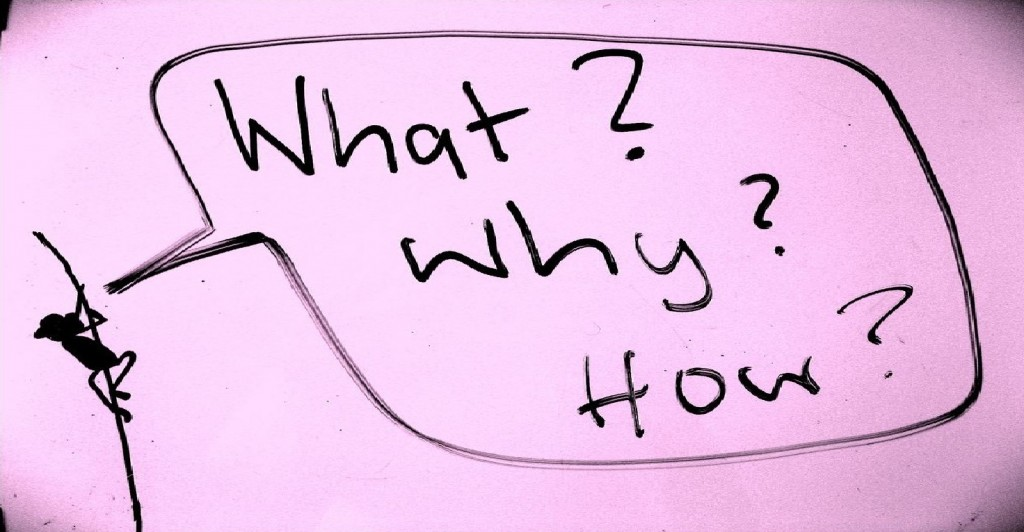 What?
Why?
How?